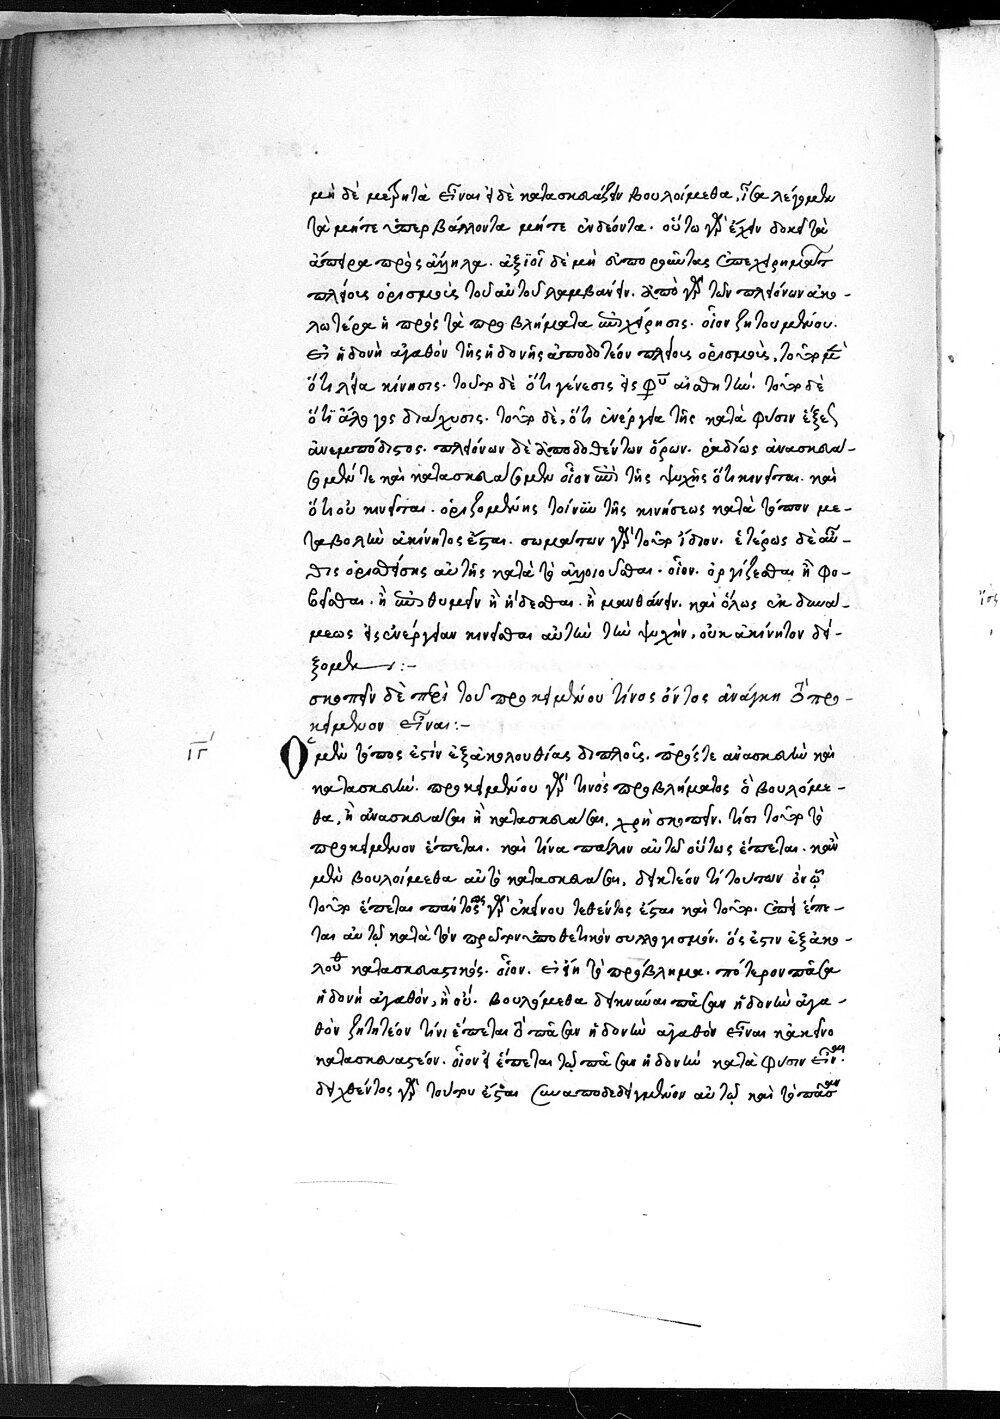 μὴ δὲ μείζητὰ εἶναι εἰ δὲ κατασκευάζειν βουλοίμεθα, ἴσα λέγομεν
τὰ μήτε ὑπερβάλλοντα μήτε ἐνδέοντα. οὕτω γὰρ ἔχειν δοκεῖ τὰ
ἄπειρα πρὸς ἄλληλα. ἀξιοῖ δὲ μὴ ἀποροῦντας ἐπιχειρημάτων
πλείους ὁρισμοὺς τοῦ αὐτοῦ λαμβάνειν. ἀπὸ γὰρ τῶν πλειόνων εὐκο-
λωτέρα ἡ πρὸς τὰ προβλήματα ἐπιχείρησις. οἷον ζητουμένου.
εἰ ἡδονὴ ἀγαθὸν τῆς ἡδονῆς ἀποδοτέον πλείους ὁρισμούς, τοῦτο μὲν
ὅτι λεία κίνησις. τοῦτο δὲ ὅτι γένεσις εἰς φύσιν αἰσθητὴν. τοῦτο δὲ
ὅτι ἄλογος διάχυσις. τοῦτο δὲ, ὅτι ἐνέργεια τῆς κατὰ φύσιν ἕξεως
ἀνεμπόδιστος. πλειόνων δὲ ἀποδοθέντων ὅρων. ῥαδίως ἀνασκευά-
σομέν τε καὶ κατασκευάσομεν οἷον ἐπὶ τῆς ψυχῆς ὅτι κινεῖται. καὶ
ὅτι οὐ κινεῖται. ὁριζομένης τοίνυν τῆς κινήσεως κατὰ τόπον με-
ταβολὴν ἀκίνητος ἔσται. σωμάτων γὰρ τοῦτο ἴδιον. ἑτέρως δὲ αὖ-
θις ὁρισθείσης αὐτῆς κατὰ τὸ ἀλλοιοῦσθαι. οἷον. ὀργίζεσθαι ἢ φο-
βεῖσθαι. ἢ ἐπιθυμεῖν ἢ ἥδεσθαι. ἢ μανθάνειν. καὶ ὅλως ἐκ δυνά-
μεως εἰς ἐνέργειαν κινεῖσθαι αὐτὴν τὴν ψυχὴν, οὐκ ἀκίνητον δεί-
ξομεν:–
σκοπεῖν δὲ περὶ τοῦ προκειμένου τίνος ὄντος ἀνάγκη τὸ προ-
κείμενον εἶναι:–
ιγ´
Ὁ μὲν τόπος ἐστὶν ἐξ ἀκολουθίας διπλοῦς. πρός τε ἀνασκευὴν καὶ
κατασκευὴν. προκειμένου γάρ τινος προβλήματος ὃ βουλόμε-
θα, ἢ ἀνασκευάσαι ἢ κατασκευάσαι, χρὴ σκοπεῖν. τίσι τοῦτο τὸ
προκείμενον ἕπεται. καὶ τίνα πάλιν αὐτῷ οὕτως ἕπεται. κἂν
μὲν βουλοίμεθα αὐτὸ κατασκευάσαι, δεικτέον τι τούτων ὂν ᾧ
τοῦτο ἕπεται πάντως γὰρ ἐκείνου τεθέντος ἔσται καὶ τοῦτο. ἐπεὶ ἕπε-
ται αὐτῷ κατὰ τὸν πρῶτον ὑποθετικὸν συλλογισμόν. ὅς ἐστιν ἐξ ἀκο-
λουθίας κατασκευαστικός. οἷον. εἰ εἴη τὸ πρόβλημα. πότερον πᾶσα
ἡδονὴ ἀγαθὸν, ἢ οὔ. βουλόμεθα δεικνύναι πᾶσαν ἡδονὴν ἀγα-
θὸν ζητητέον τίνι ἕπεται τὸ πᾶσαν ἡδονὴν ἀγαθὸν εἶναι κἀκεῖνο
κατασκευαστέον. οἷον εἰ ἕπεται τῷ πᾶσαν ἡδονὴν κατὰ φύσιν εἶναι.
δειχθέντος γὰρ τούτου ἔσται συναποδεδειγμένον αὐτῷ καὶ τὸ πᾶσαν